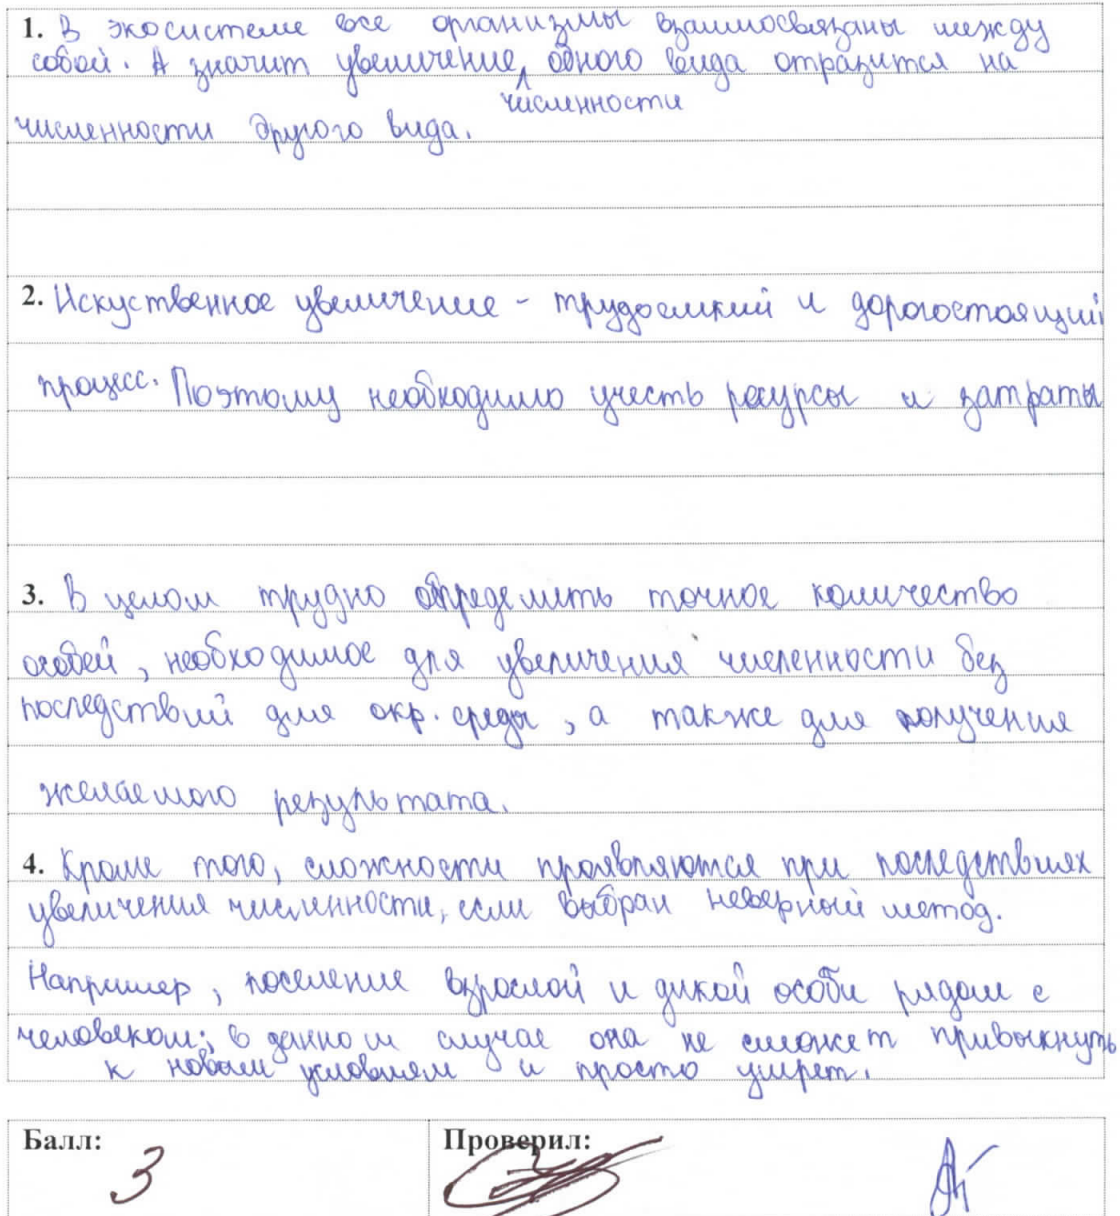 1. В экосистеме все организмы взаимосвязаны между
собой. А значит увеличение численности одного вида отразится на
численности другого вида.
2. Искуственное увеличение - трудоемкий и дорогостоящий
процесс. Поэтому необходимо учесть ресурсы и затраты
3. В целом трудно определить точное количество
особей, необходимое для увеличения численности без
последствий для окр. среды, а также для получения
желаемого результата.
4. Кроме того, сложности проявляются при последствиях
увеличения численности, если выбран неверный метод.
Например, поселение взрослой и дикой особи рядом с
человеком; в данном случае она не сможет привыкнуть
к новым условиям и просто умрет.
Балл: 3 Проверил: